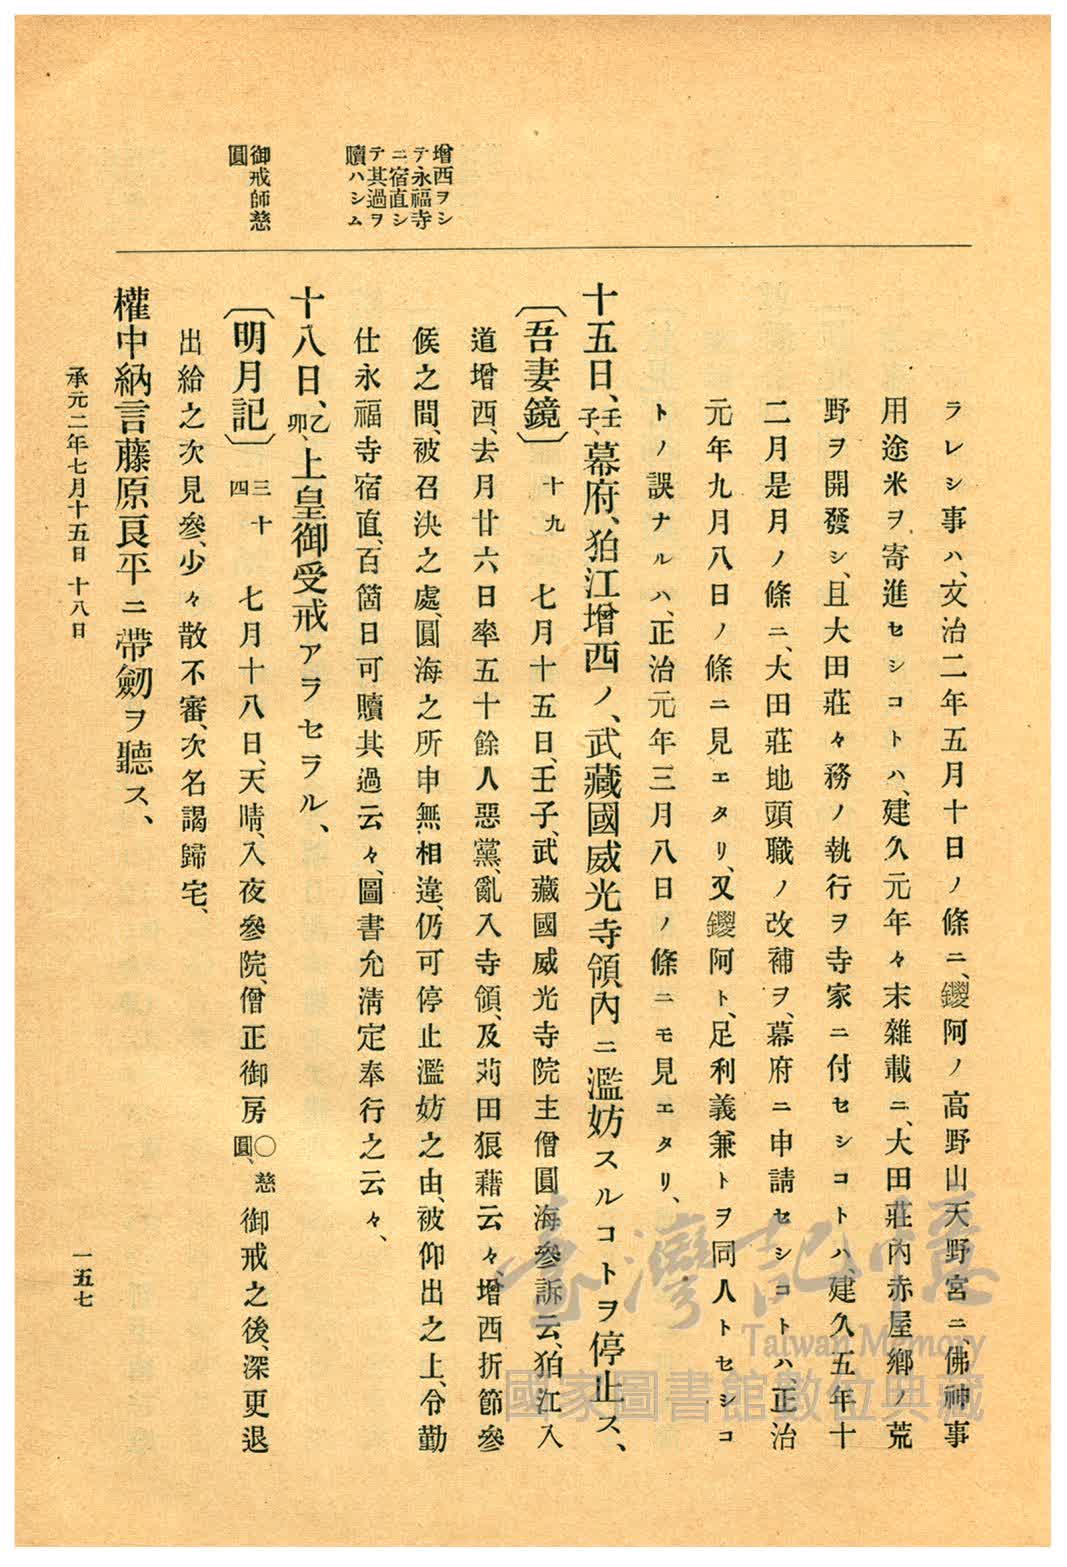 增西ヲシ
テ永福寺
ニ宿直シ
テ其過ヲ
贖ハシム
御戒師慈
圓
ラレシ事ハ、文治二年五月十日ノ條ニ、鑁阿ノ高野山天野宮ニ、佛神事
用途米ヲ寄進セシコトハ、建久元年々末雜載ニ、大田莊內赤屋鄉ノ荒
野ヲ開發シ、且大田莊々務ノ執行ヲ寺家ニ付セシコトハ、建久五年十
二月是月ノ條ニ、大田莊地頭職ノ改補ヲ、幕府ニ申請セシコトハ、正治
元年九月八日ノ條ニ見エタリ、又鑁阿ト、足利義兼トヲ同人トセシコ
トノ誤ナルハ、正治元年三月八日ノ條ニモ見エタリ、
十五日、壬子、幕府、狛江增西ノ、武藏國威光寺領內ニ濫妨スルコトヲ停止ス、
〔吾妻鏡〕十九 七月十五日、壬子、武藏國威光寺院主僧圓海參訴云、狛江入
道增西、去月廿六日率五十餘人惡黨、亂入寺領、及苅田狼藉云々、增西折節參
候之間、被召決之處、圓海之所申無相違、仍可停止濫妨之由、被仰出之上、令勤
仕永福寺宿直、百箇日可贖其過云々、圖書允淸定奉行之云々、
十八日、乙卯、上皇御受戒アラセラル、
〔明月記〕三十四 七月十八日、天晴、入夜參院、僧正御房〇慈圓、御戒之後、深更退
出給之次見參、少々散不審、次名謁歸宅、
權中納言藤原良平ニ帶劒ヲ聽ス、
承元二年七月十五日 十八日
一五七
臺灣記憶
Taiwan Memory
國家圖書館數位典藏